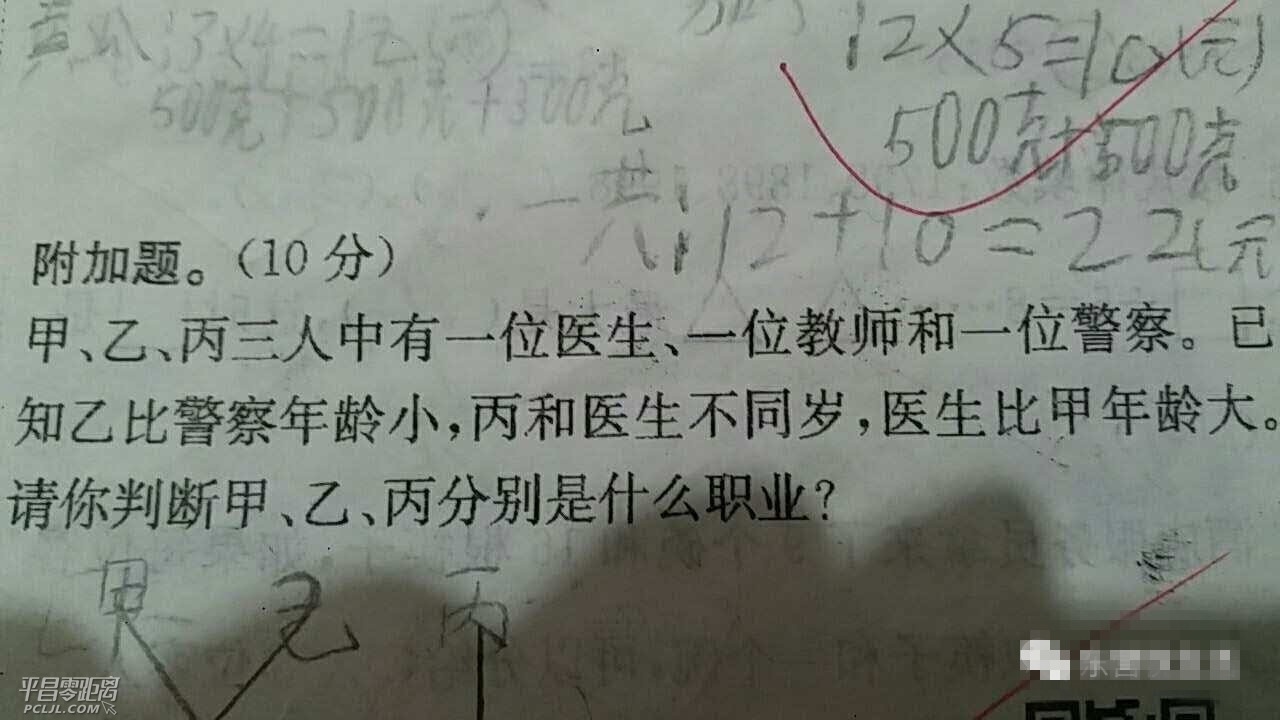 3×4=12(元)
500克+500克+500克
12×5=10(元)
500克+500克
一共:12+10=22(元
附加题。(10分)
甲、乙、丙三人中有一位医生、一位教师和一位警察。已
知乙比警察年龄小,丙和医生不同岁,医生比甲年龄大。
请你判断甲、乙、丙分别是什么职业?
甲 乙 丙
平昌零距离
PCLJL.COM